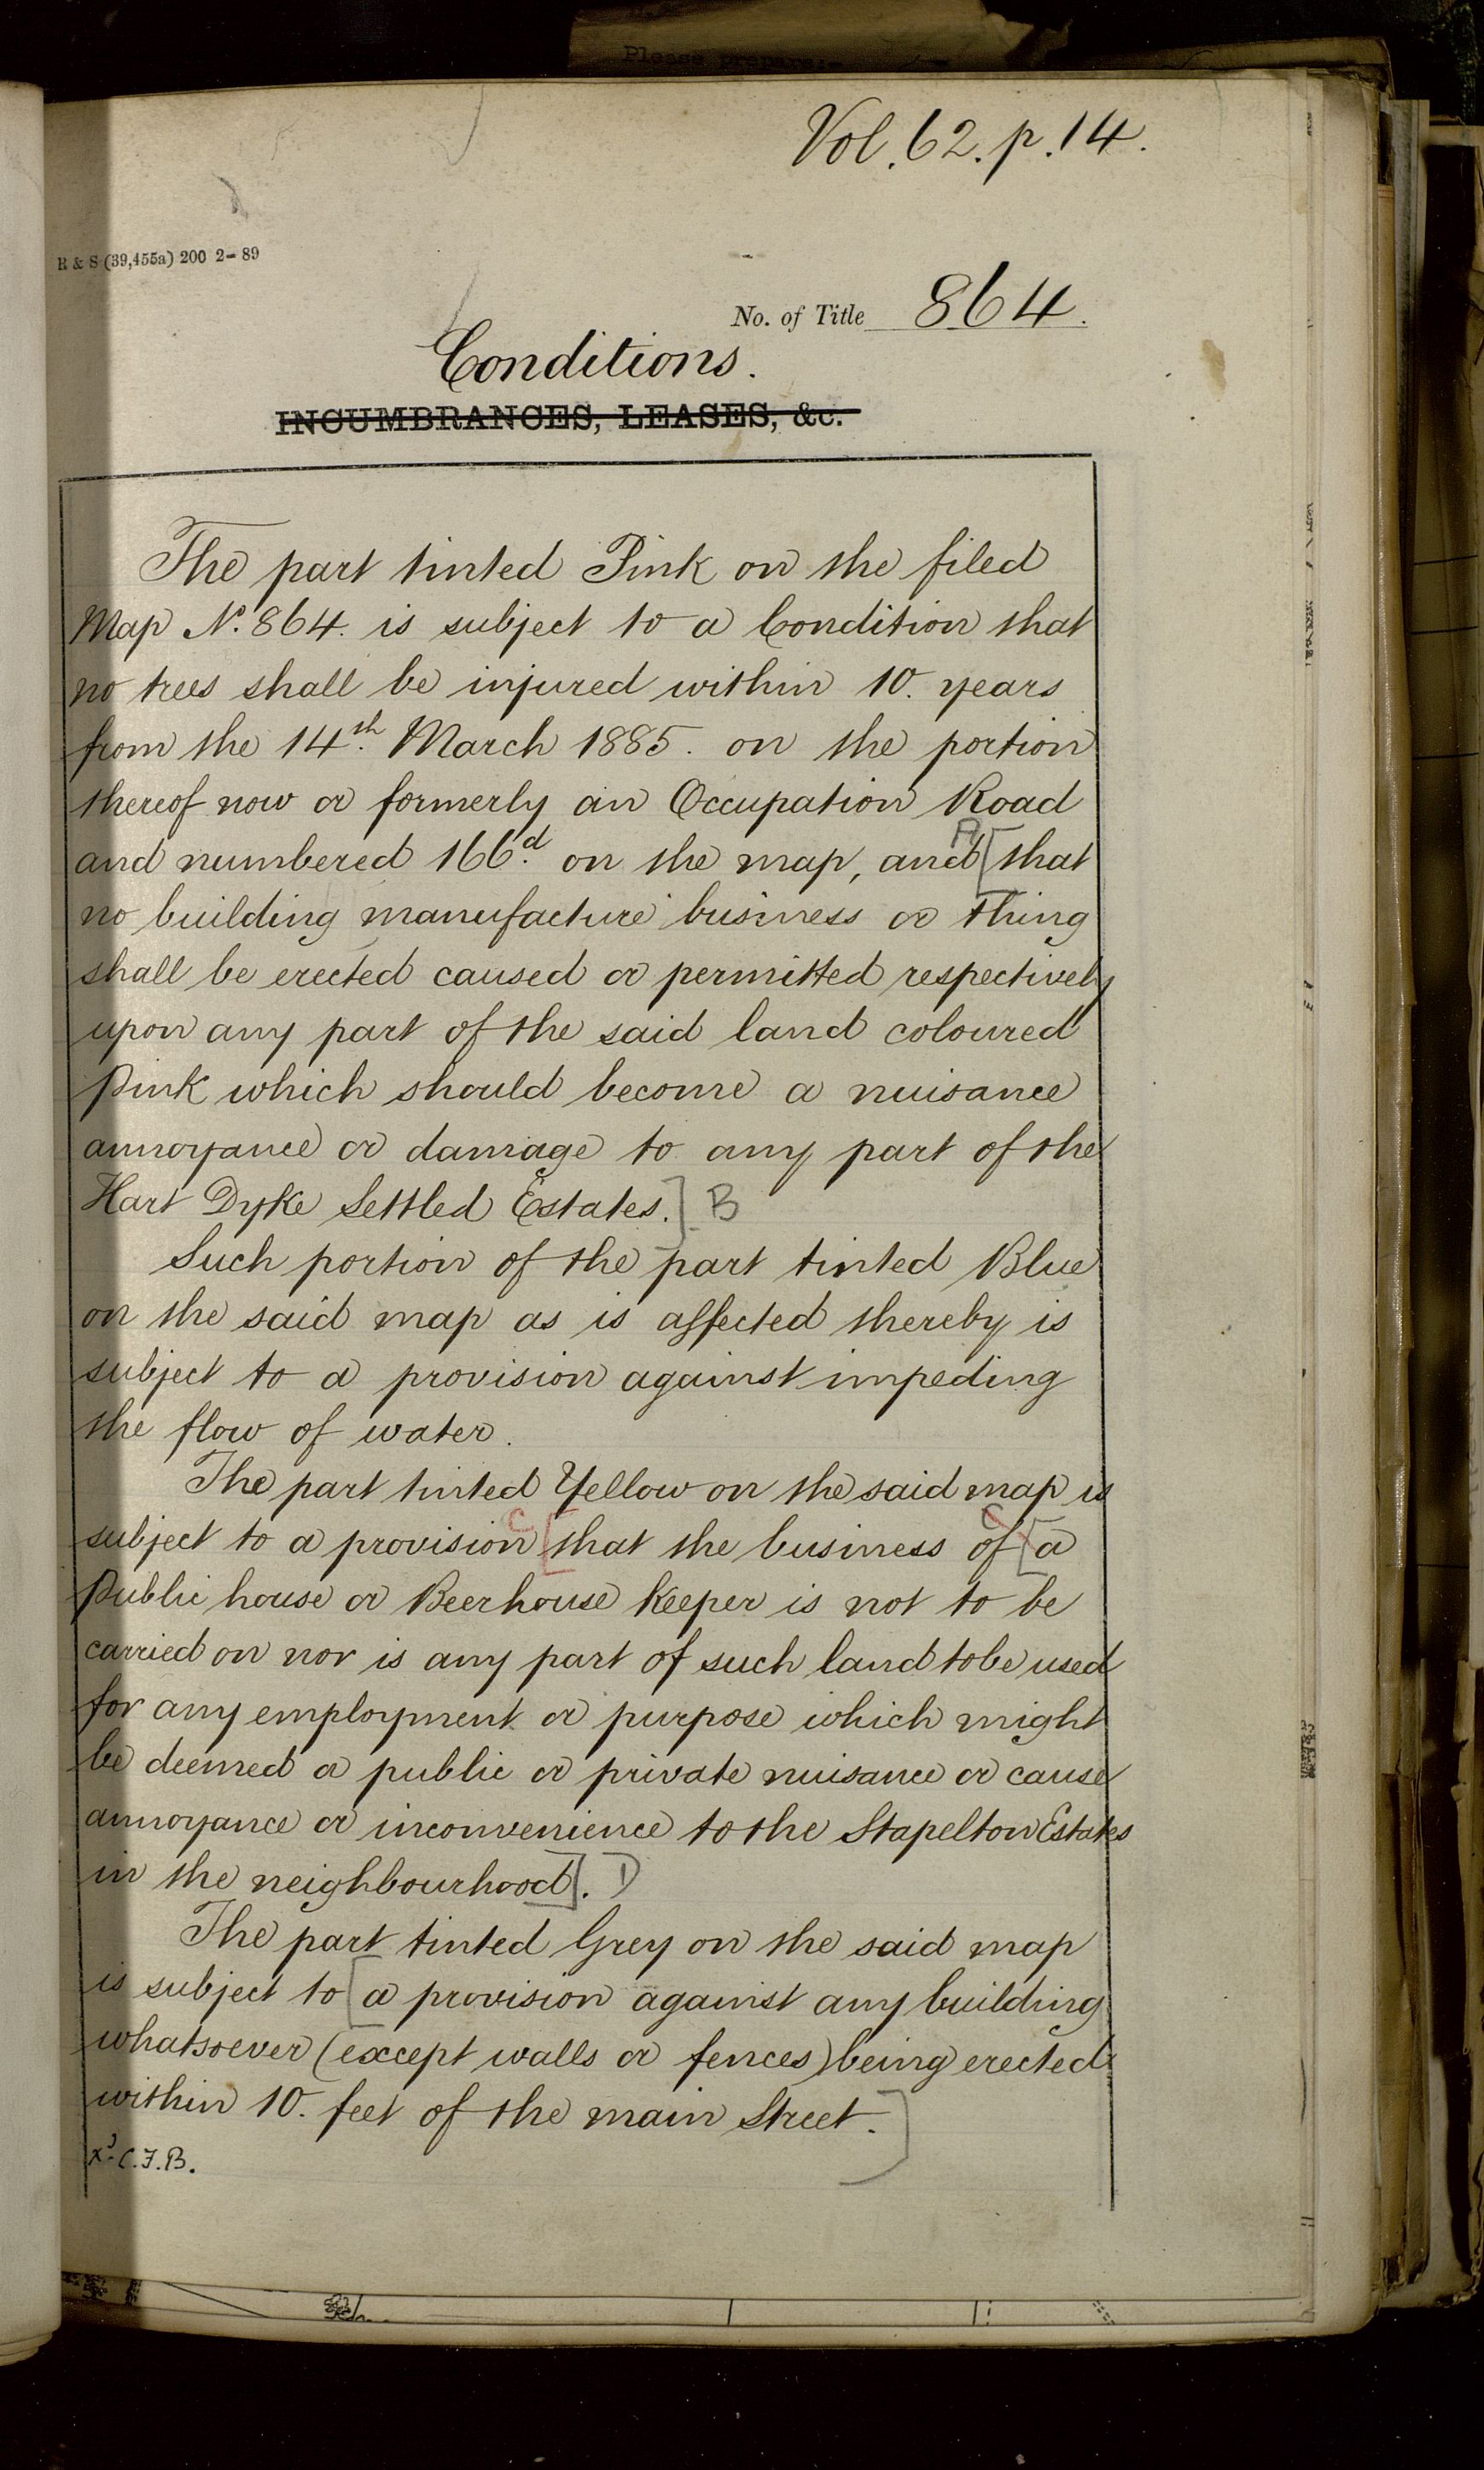 Please prepare:-
Vol. 62. p. 14.
R & S (39,455a) 200 2-89
No. of Title 864.
Conditions.
INCUMBRANCES, LEASES, &c.
The part tinted Pink on the filed
Map No. 864. is subject to a Condition that
no trees shall be injured within 10. years
from the 14th. March 1885. on the portion
thereof now or formerly an Occupation Road
and numbered 166d. on the map, and A [that
no building manufacture business or thing
shall be erected caused or permitted respectively
upon any part of the said land coloured
Pink which should become a nuisance
annoyance or damage to any part of the
Hart Dyke Settled Estates.] B
Such portion of the part tinted Blue
on the said map as is affected thereby is
subject to a provision against impeding
the flow of water.
The part tinted Yellow on the said map is
subject to a provision C [that the business of C [a
Public house or Beerhouse Keeper is not to be
carried on nor is any part of such land to be used
for any employment or purpose which might
be deemed a public or private nuisance or cause
annoyance or inconvenience to the Stapelton Estates
in the neighbourhood]. D
The part tinted Grey on the said map
is subject to [a provision against any building
whatsoever (except walls or fences) being erected
within 10. feet of the main Street.]
C.F.B.